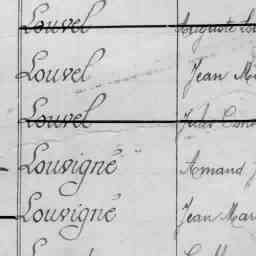 Louvel Auguste
Louvel Jean
Louvel Jules
Louvigné Amand
Louvigné Jean Mar